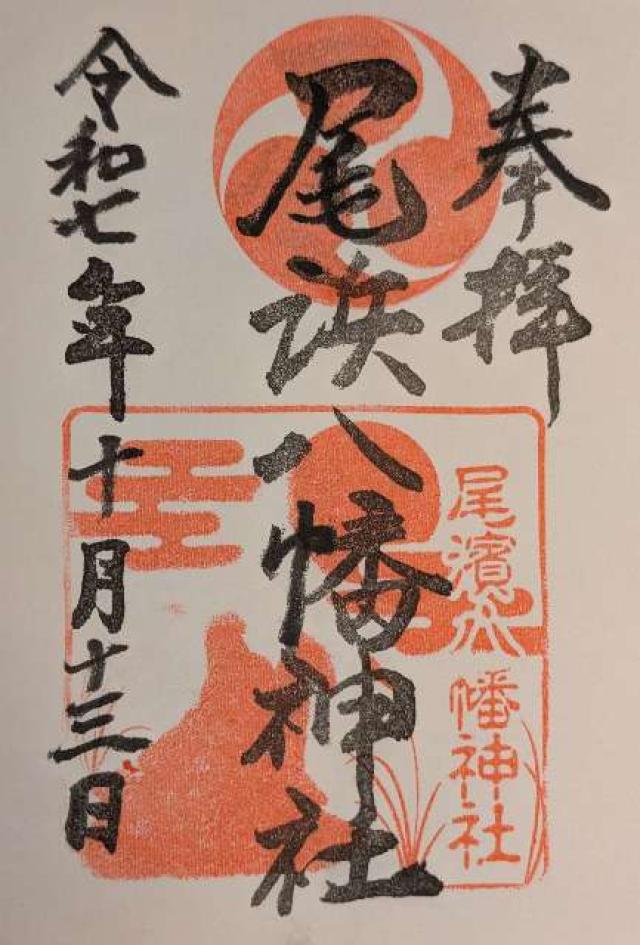 奉拝
尾濱八幡神社
尾浜八幡神社
令和七年十月十三日